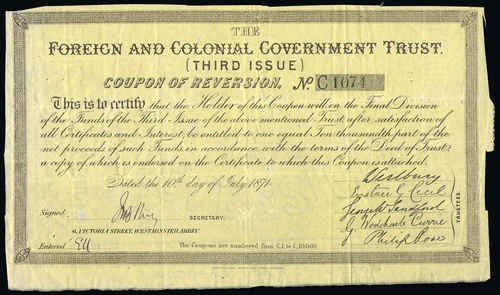 THE
FOREIGN AND COLONIAL GOVERNMENT TRUST.
(THIRD ISSUE)
COUPON OF REVERSION, No. C 1074
This is to certify that the Holder of this Coupon will, on the Final Division
of the Funds of the Third Issue of the above mentioned Trust, after satisfaction of
all Certificates and Interest, be entitled to one equal Ten thousandth part of the
net proceeds of such Funds in accordance with the terms of the Deed of Trust,
a copy of which is endorsed on the Certificate to which this Coupon is attached.
Dated the 10th day of July 1871.
Westbury
Eustace G Cecil
George W Sandford
G. Wodehouse Currie
Philip Rose
TRUSTEES.
Signed
SECRETARY.
6, VICTORIA STREET, WESTMINSTER ABBEY.
Entered
The Coupons are numbered from C,1, to C,10,000.